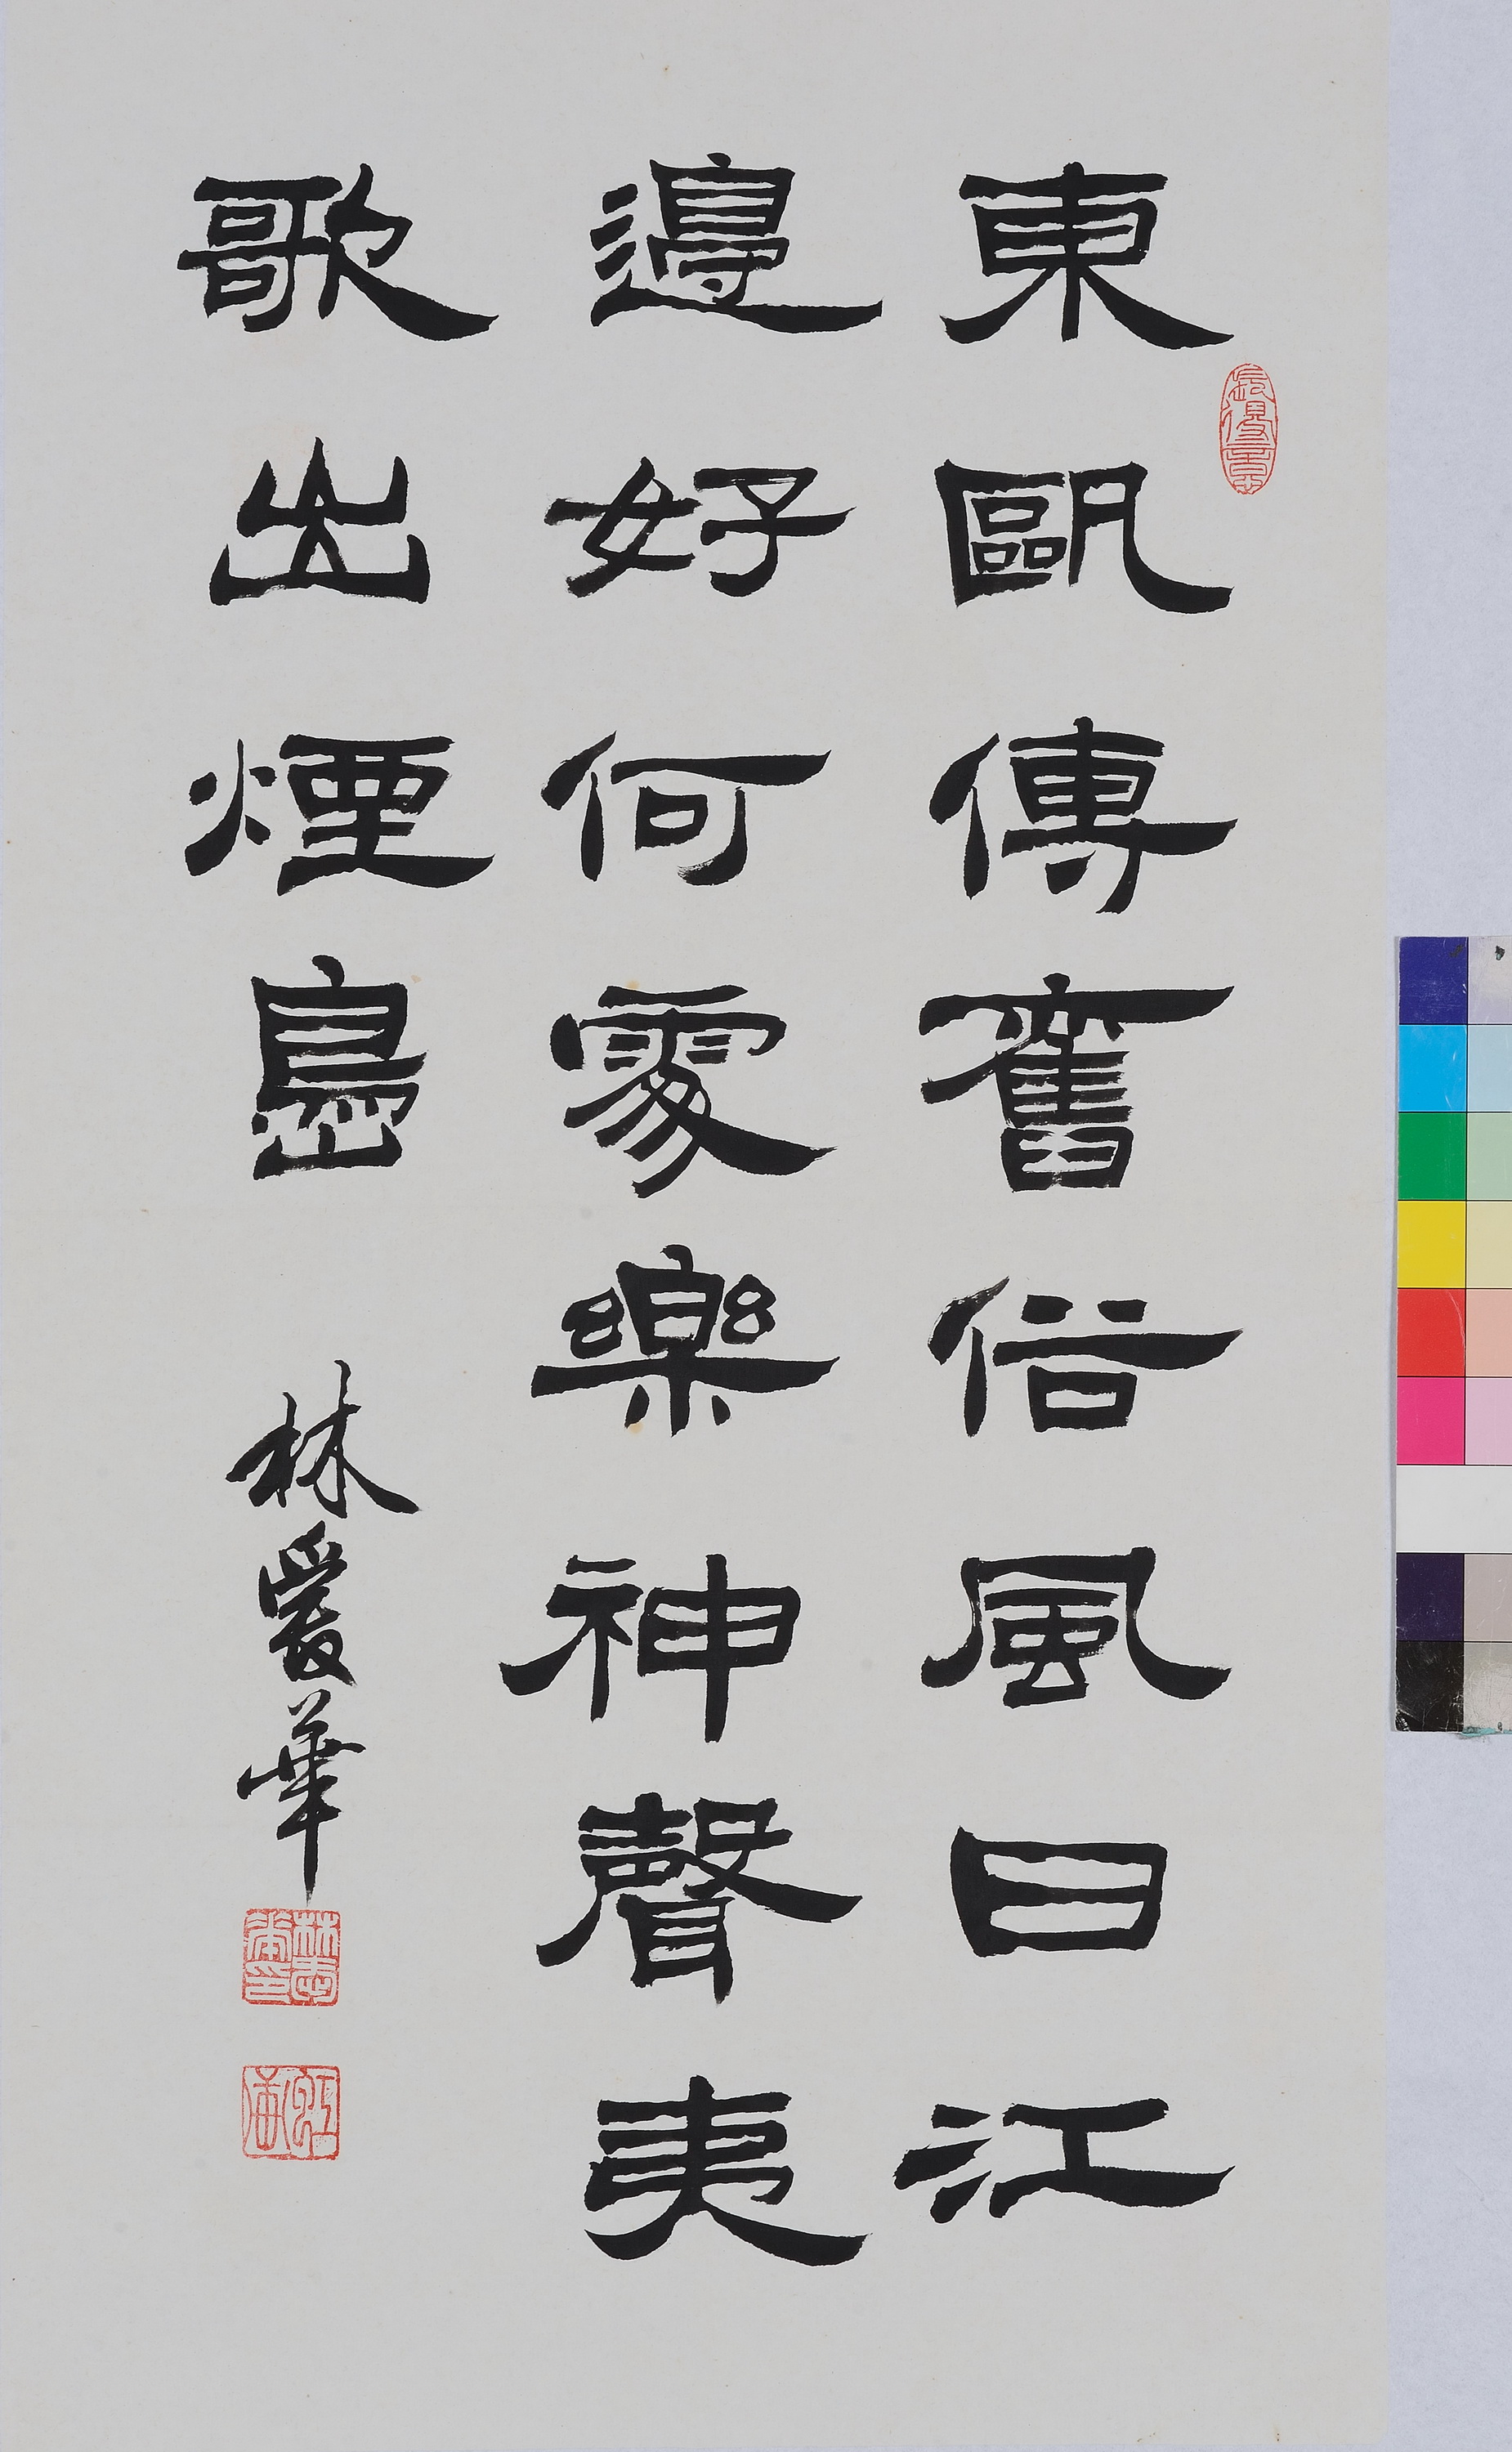 東甌傳舊俗風日江
邊好何處樂神聲夷
歌出煙島
林愛華